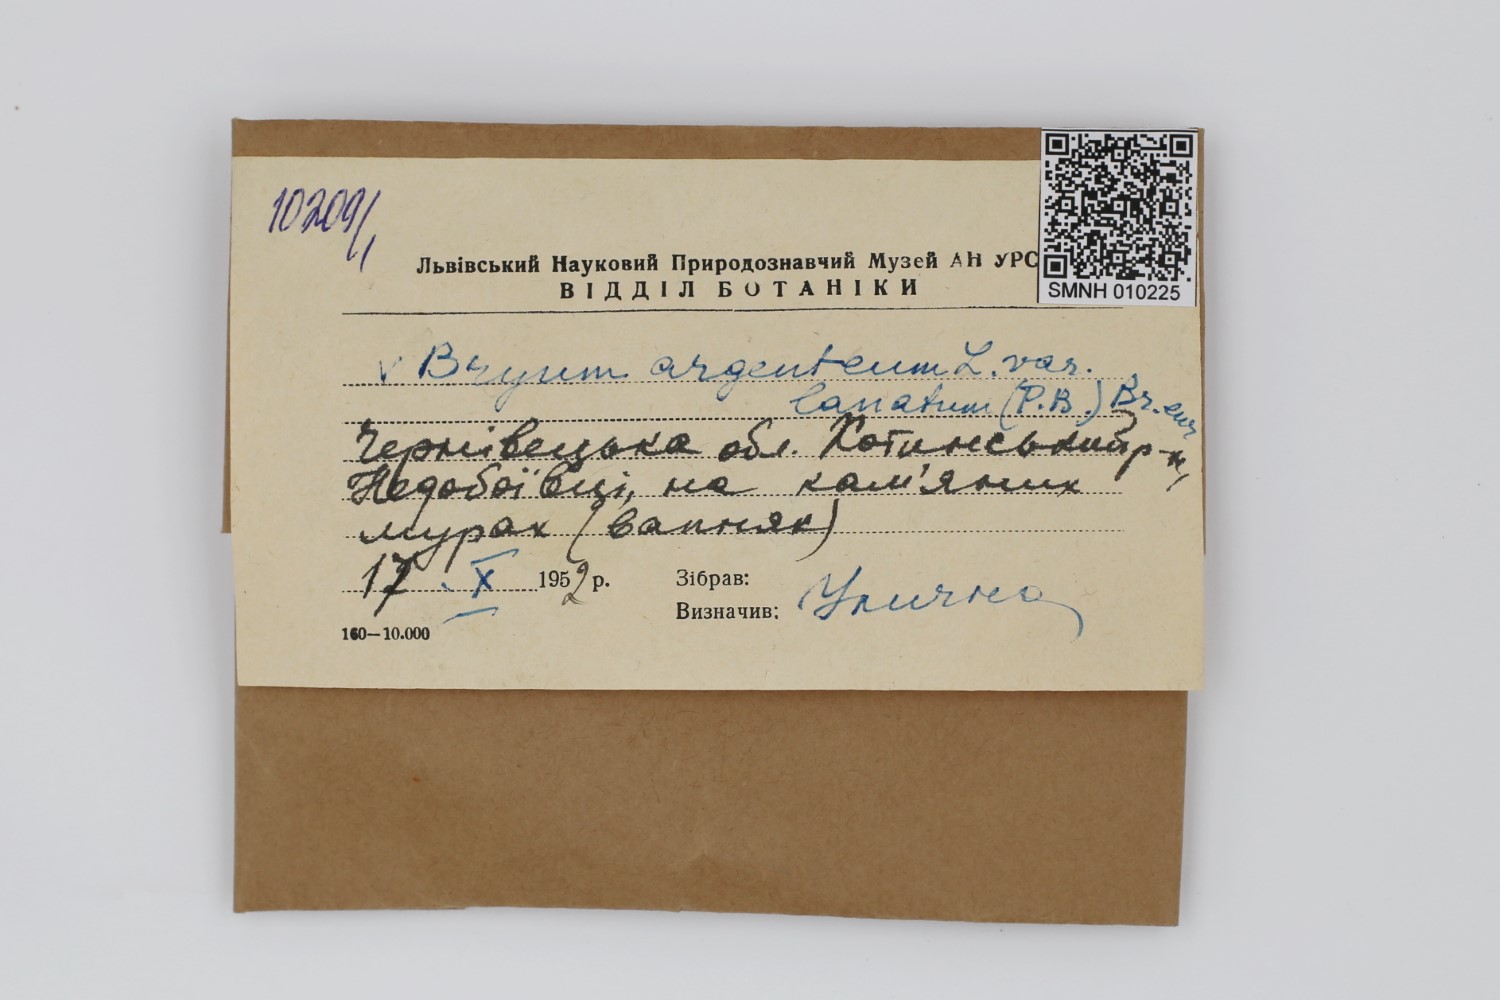 10209/1
SMNH 010225
Львівський Науковий Природознавчий Музей АН УРС
ВІДДІЛ БОТАНІКИ
v Bryum argenteum L. var.
lanatum (P.B.) Br. eur
Чернівецька обл. Хотинський р-н,
Недобоївці, на кам'яних
мурах (вапняк)
17 . X 1952 р.
Зібрав:
Визначив: Улична
160—10.000